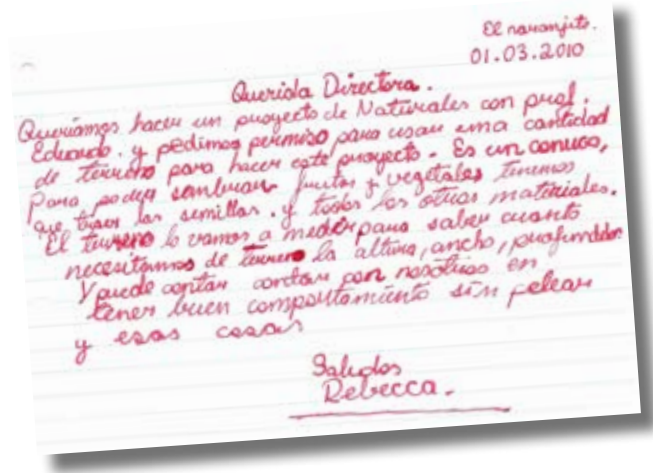 El naranjito.
01.03.2010
Querida Directora.
Queriamos hacer un proyecto de Naturales con prof.
Eduardo. y pedimos permiso para usar una cantidad
de terreno para hacer este proyecto. Es un conuco,
Para poder sembrar frutas y vegetales tenemos
que traer las semillas. y todos los otros materiales.
El terreno lo vamos a medir para saber cuanto
necesitamos de terreno la altura, ancho, profundidad
Y puede contar contar con nosotros en
tener buen comportamiento sin pelear
y esas cosas
Saludos
Rebecca.